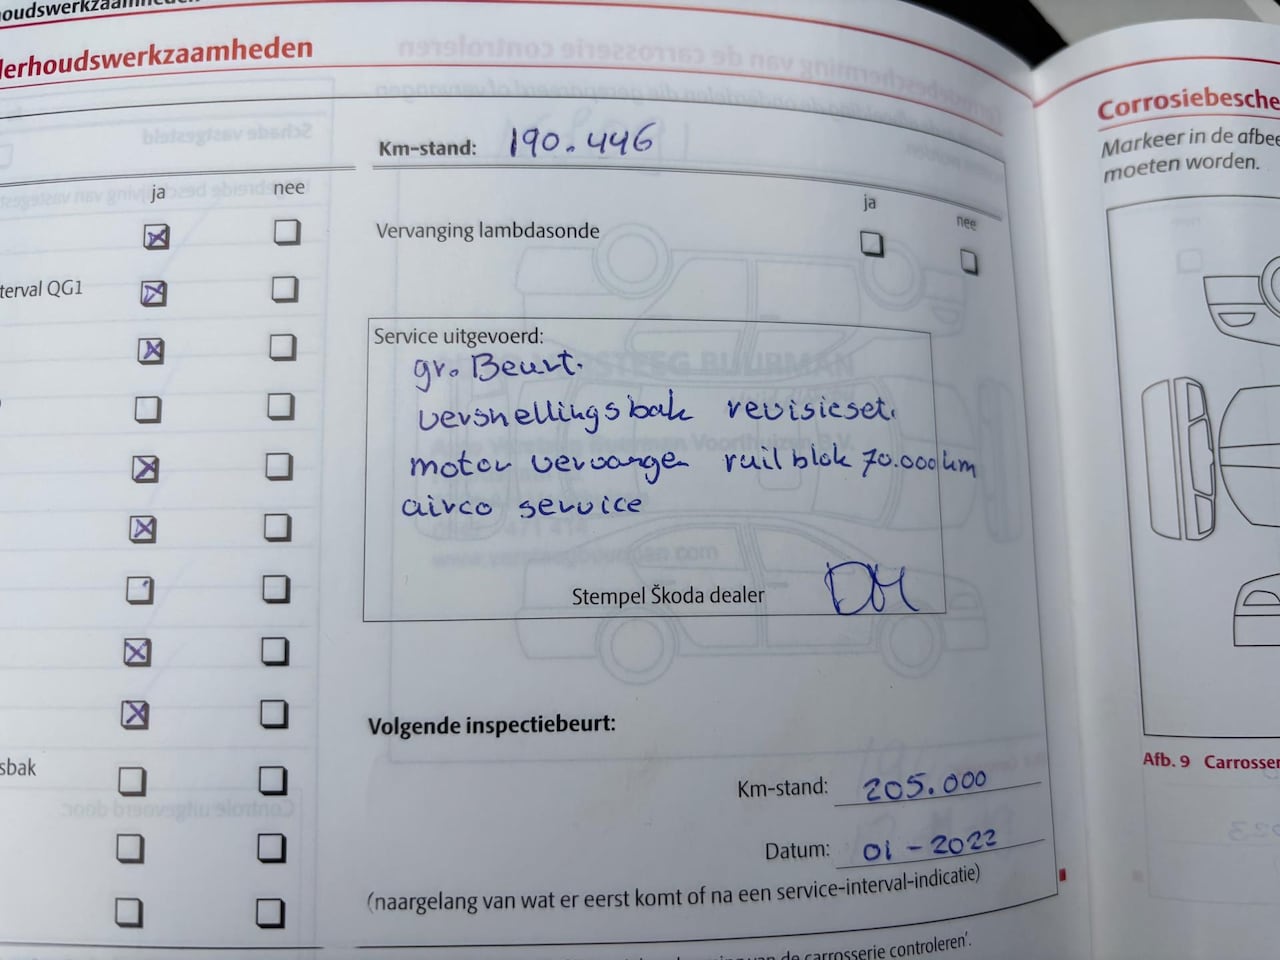 Onderhoudswerkzaamheden
Km-stand: 190.446
ja nee
terval QG1
sbak
Vervanging lambdasonde
ja nee
Service uitgevoerd:
gr. Beurt.
versnellingsbak revisieset.
motor vervangen ruil blok 70.000 km
airco service
Stempel Škoda dealer
DM
Volgende inspectiebeurt:
Km-stand: 205.000
Datum: 01 - 2022
(naargelang van wat er eerst komt of na een service-interval-indicatie)
van de carrosserie controleren'.
Corrosiebesche
Markeer in de afbee
moeten worden.
Afb. 9 Carrosser